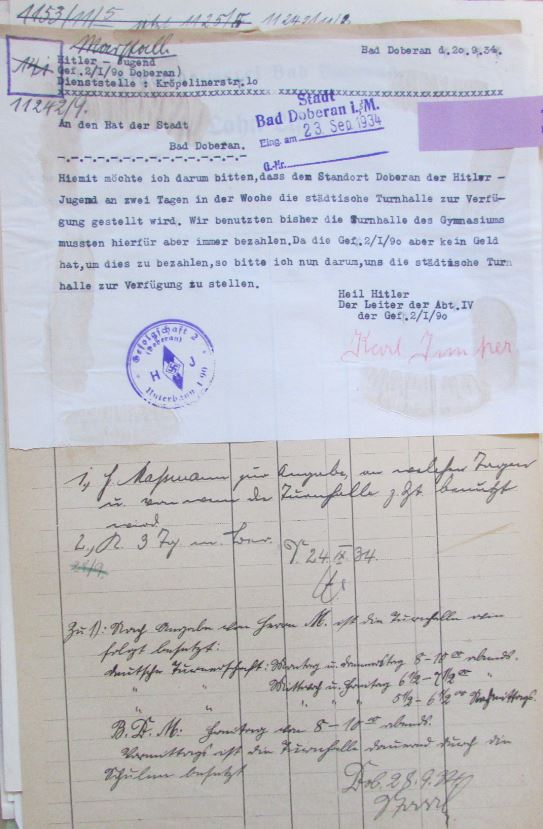 1153/11/5 1125/5 11242/11/2
Marstall
Hitler - Jugend
Bad Doberan d.20.9.34.
Gef.2/I/90 Doberan)
Dienststelle : Kröpelinerstr.10
xxxxxxxxxxxxxxxxxxxxxxxxxxxxxxxxxxxxxxxxxxxxxxxxxxxxxxxxxxxx
11242/9.
Stadt
Bad Doberan i./M.
Eing. am 23. Sep. 1934
G.-Nr.
An den Rat der Stadt
Bad Doberan.
-.-.-.-.-.-.-.-.-.-.-.-.-.-.-
Hiemit möchte ich darum bitten,dass dem Standort Doberan der Hitler -
Jugend an zwei Tagen in der Woche die städtische Turnhalle zur Verfü-
gung gestellt wird. Wir benutzten bisher die Turnhalle des Gymnasiums
mussten hierfür aber immer bezahlen.Da die Gef.2/I/90 aber kein Geld
hat,um dies zu bezahlen,so bitte ich nun darum,uns die städtische Turn
halle zur Verfügung zu stellen.
Heil Hitler
Der Leiter der Abt.IV
der Gef.2/I/90
Karl
Gefolgschaft 2
(Doberan)
H J
Unterbann I/90
1., H. Maßmann zur Angabe, an welchen Tagen
u. von wem die Turnhalle z. Zt. benutzt
wird.
2., N. 3 Tg
24.IX.34.
28/9.
Zu 1): Nach Angabe von Herrn M. ist die Turnhalle wie
folgt besetzt:
deutsche Turnerschaft: Montag u. Donnerstag 8-10 00 abends.
" " Mittwoch u. Freitag 6 1/2 - 7 1/2 00 "
" " " 5 1/2 - 6 1/2 00 Nachmittags.
B.D.M: von 8-10 00 abends.
Vormittags ist die Turnhalle dauernd durch die
Schulen besetzt
Dob. 28.9.34